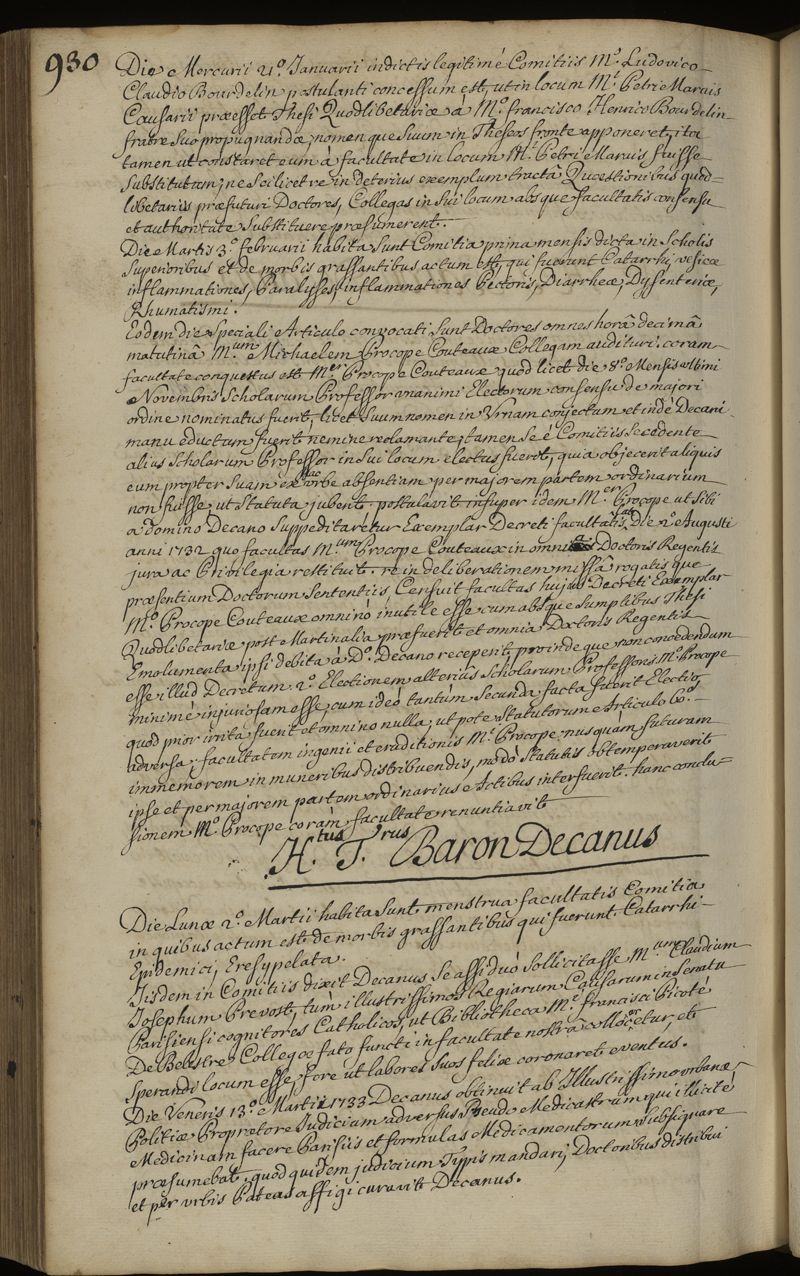 930
Die Mercurii 21.º Januarii indictis legitimè Comitiis M.º Ludovico
Claudio Bourdelin postulanti concessum est, ut in locum M.i Petri Maruis
Causarii præesset Thesi Quodlibetariæ à M.º francisco Henrico Bourdelin
fratre suo propugnandæ, nomenque suum in Theseos fronte apponeret, ita
tamen ut constaret eum à facultate in locum M.i Petri Maruis fuisse
substitutum; ne scilicet re in deterius exemplum tractâ Quæstionibus quod=
libetariis præfuturi Doctores, Collegas in sui locum absque facultatis consensu
et authoritate substituere præsumerent.
Die Martis 3.º februarii habita sunt Comitia prima mensis dicta in Scholis
superioribus et de morbis grassantibus actum est, qui fuerunt Catarrhi, vesicæ
inflammationes, Paralyses, inflammationes Pectoris, Diarrheæ, Dysenteriæ,
Rhumatismi.
Eodem die speciali Articulo convocati sunt Doctores omnes horâ decimâ
matutinâ M.um Michaelem Procope Couteaux Collegam audituri. coram
facultate conquestus est M.er Procope Couteaux quod licet die 8.º Mensis
Novembris Scholarum Professor unanimi Electorum consensu de majori
ordine nominatus fuerit, licet suum nomen in Urnam conjectum et inde Decani
manu eductum fuerit nemine reclamante, tamen se è Comitiis secedente
alius Scholarum Professor in sui locum electus fuerit, quia objecerit aliquis
eum propter suam ex hac orbe absentiam per majorem partem ordinarium
non fuisse, ut statuta jubent. postulavit insuper idem M.er Procope ut sibi
a domino Decano suppeditaretur Exemplar Decreti facultatis lati die 2.º Augusti
anni 1732 quo facultas M.um Procope Couteaux in omnia Doctoris Regentis
jura ac Privilegia restituit. re in deliberationem missâ rogatisque
præsentium Doctorum sententiis, Censuit facultas hujus Decreti Exemplar
M.º Procope Couteaux omninò inutile esse cum absque sumptibus Thesi
Quodlibetariæ post Martinalia præfuerit et omnia Doctoris Regentis
Emolumenta ipsi debita à D.º Decano receperit, proindeque non concedendum
esse illud Decretum. 2.º Electionem alterius Scholarum Professoris M.º Procope
minimè injuriosam esse, cum ideò tantùm secunda facta fuerit Electio
quod prior irrita fuerit et omnino nulla, ut pote statutorum Articulo 60.º
adversa; facultatem ingenii et eruditionis M.i Procope nusquàm futuram
immemorem in muneribus distribuendis, modò statutis obtemperaverit
ipse et per majorem partem ordinarius Actibus interfuerit. hanc conclu=
sionem M.º Procope coràm facultate renuntiavit
H.tus T.rus Baron Decanus
Die Lunæ 2.º Martii habita sunt menstrua facultatis Comitia
in quibus actum est de morbis grassantibus qui fuerunt Catarrhi
Epidemici, Eresypelata.
Jisdem in Comitiis dixit Decanus se assiduò sollicitasse M.um Claudium
Josephum Prevost, tùm illustrissimos Regiarum Causarum in Senatu
Parisiensi cognitores Catholicos, ut Bibliotheca M.i francisci Picoté
De Belestre Collegæ fato functi in facultate nostra collocaretur, et
sperandi locum esse, fore ut labores suos felix coronaret eventus.
Die Veneris 13.º Martii 1733 Decanus obtinuit ab Illustrissimo urbanæ
Politiæ Proprætore Judicium adversus Pseudo Medicastrum qui illicitè
Medicinam facere Parisiis et formulas Medicamentorum subsignare
præsumebat, quod quidem judicium Typis mandari, Doctoribus distribui
et per urbis Plateas affigi curavit Decanus.